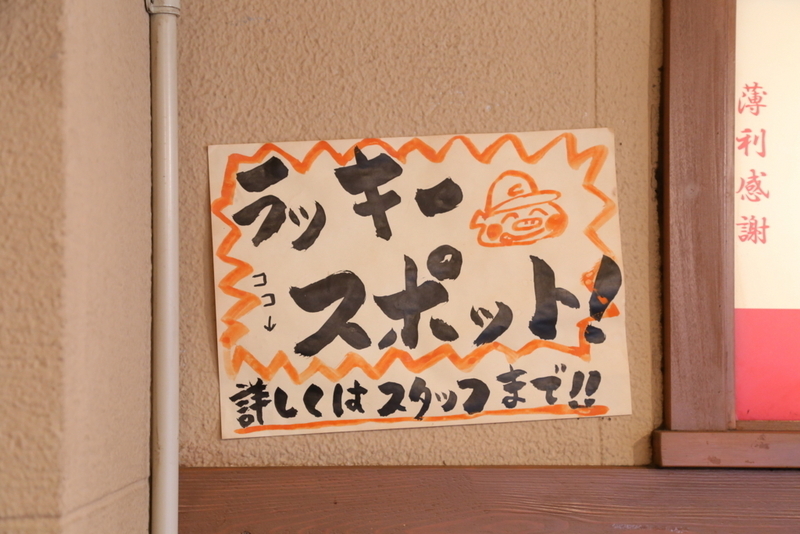 ラッキー
C
ココ↓
スポット!
詳しくはスタッフまで!!
薄利感謝